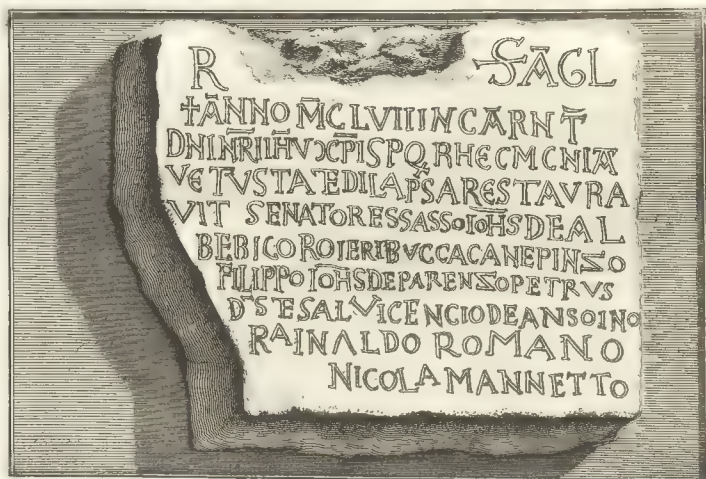 R SĀGL
+ĀNNO M̄CLVIIINCĀRNT̄
DNINR̄IIH̄VXC̄P̄ISPQRHECMCNIA
VETVSTATEDILAPSARESTAVRA
VIT SENATORESSASSOIOH̄SDEAL
BERICOROIERIBVCCACANEPINZO
FILIPPOIOH̄SDEPARENZOPETRVS
D̄STESALVICENCIODEANSOINO
RAINALDO ROMANO
NICOLA MANNETTO